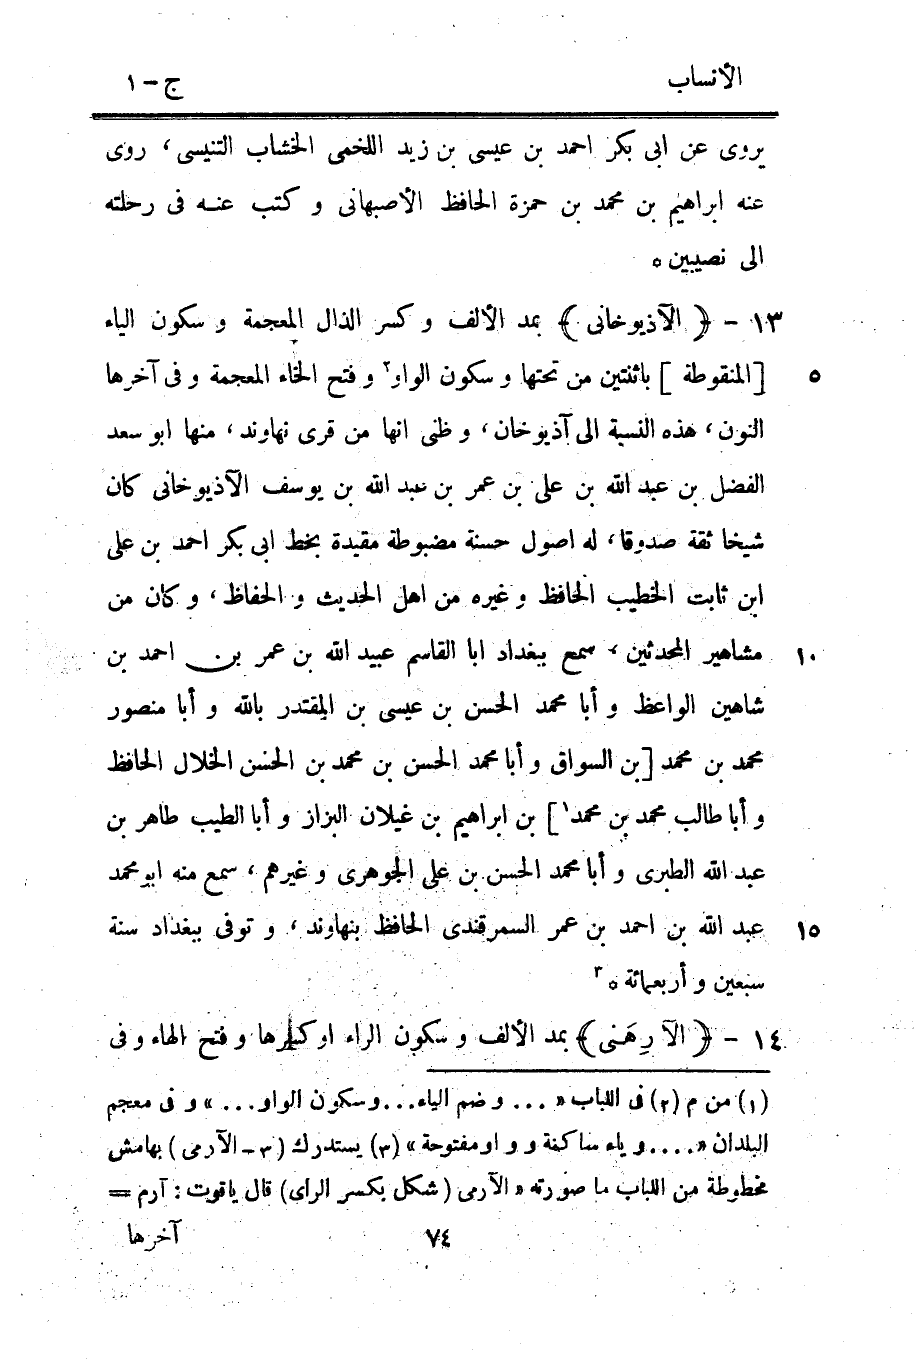 الأنساب ج - ١
يروى عن ابى بكر احمد بن عيسى بن زيد اللخمى الخشاب التنيسى ، روى
عنه ابراهيم بن محمد بن حمزة الحافظ الأصبهانى و كتب عنه فى رحلته
الى نصيبين ٥
١٣ - ﴿ الآذيوخانى ﴾ بمد الألف و كسر الذال المعجمة و سكون الياء
[المنقوطة ] باثنتين من تحتها و سكون الواو٢ و فتح الخاء المعجمة و فى آخرها ٥
النون ، هذه النسبة الى آذيوخان ، و ظنى انها من قرى نهاوند ، منها ابو سعد
الفضل بن عبد الله بن على بن عمر بن عبد الله بن يوسف الآذيوخانى كان
شيخا ثقة صدوقا ، له اصول حسنة مضبوطة مقيدة بخط ابى بكر احمد بن على
ابن ثابت الخطيب الحافظ و غيره من اهل الحديث و الحفاظ ، و كان من
مشاهير المحدثين ، سمع ببغداد ابا القاسم عبيد الله بن عمر بن احمد بن ١٠
شاهين الواعظ و أبا محمد الحسن بن عيسى بن المقتدر بالله و أبا منصور
محمد بن محمد [بن السواق و أبا محمد الحسن بن محمد بن الحسن الخلال الحافظ
و أبا طالب محمد بن محمد١] بن ابراهيم بن غيلان البزاز و أبا الطيب طاهر بن
عبد الله الطبرى و أبا محمد الحسن بن على الجوهرى و غيرهم ، سمع منه ابو محمد
عبد الله بن احمد بن عمر السمرقندى الحافظ بنهاوند ، و توفى ببغداد سنة ١٥
سبعين و أربعمائة ٥ ٣
١٤ - ﴿ الآرِهَنى ﴾ بمد الألف و سكون الراء او كسرها و فتح الهاء و فى
(١) من م (٢) فى اللباب « ... و ضم الياء...و سكون الواو... » و فى معجم
البلدان «....و ياء ساكنة و واو مفتوحة» (٣) يستدرك (٣-الآرمى) بهامش
مخطوطة من اللباب ما صورته « الآرمى ( شكل بكسر الراى) قال ياقوت : آرم =
٧٤ آخرها